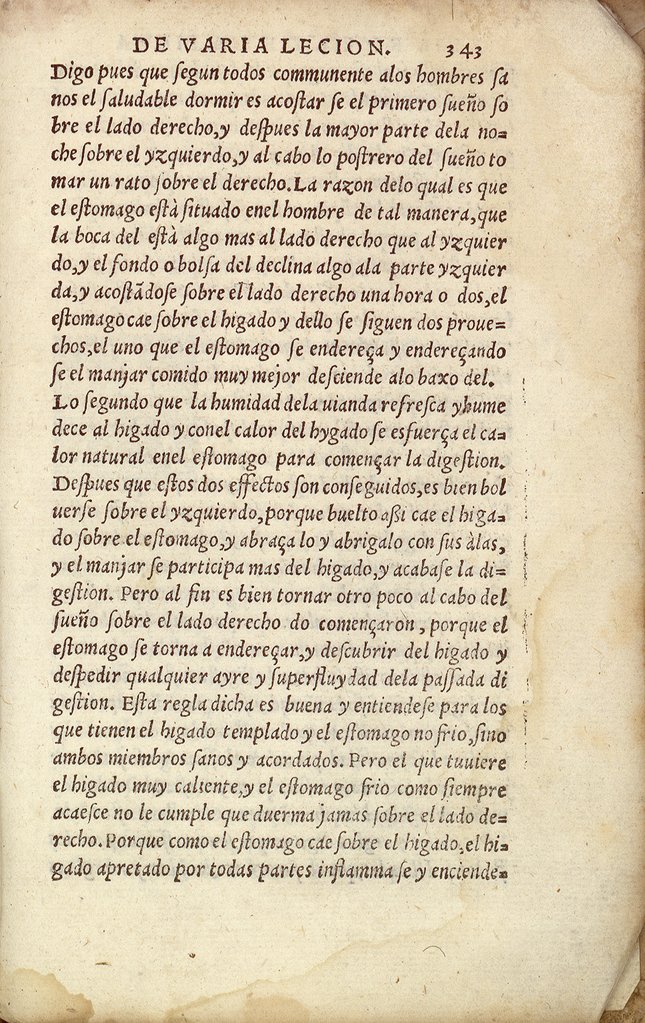 DE VARIA LECION. 343
Digo pues que ſegun todos communente alos hombres ſa
nos el ſaludable dormir es acoſtar ſe el primero ſueño ſo
bre el lado derecho,y deſpues la mayor parte dela no=
che ſobre el yzquierdo,y al cabo lo poſtrero del ſueño to
mar un rato ſobre el derecho. La razon delo qual es que
el eſtomago eſtà ſituado enel hombre de tal manera,que
la boca del eſtà algo mas al lado derecho que al yzquier
do,y el fondo o bolſa del declina algo ala parte yzquier
da,y acoſtãdoſe ſobre el lado derecho una hora o dos,el
eſtomago cae ſobre el higado y dello ſe ſiguen dos proue=
chos,el uno que el eſtomago ſe endereça y endereçando
ſe el manjar comido muy mejor deſciende alo baxo del.
Lo ſegundo que la humidad dela uianda refreſca yhume
dece al higado y conel calor del hygado ſe esfuerça el ca=
lor natural enel eſtomago para començar la digeſtion.
Deſpues que eſtos dos effectos ſon conſeguidos,es bien bol
uerſe ſobre el yzquierdo,porque buelto aßi cae el higa=
do ſobre el eſtomago,y abraça lo y abrigalo con ſus àlas,
y el manjar ſe participa mas del higado,y acabaſe la di=
geſtion. Pero al fin es bien tornar otro poco al cabo del
ſueño ſobre el lado derecho do començaron, porque el
eſtomago ſe torna a endereçar,y deſcubrir del higado y
deſpedir qualquier ayre y ſuperfluydad dela paſſada di
geſtion. Eſta regla dicha es buena y entiendeſe para los
que tienen el higado templado y el eſtomago no frio,ſino
ambos miembros ſanos y acordados. Pero el que tuuiere
el higado muy caliente,y el eſtomago frio como ſiempre
acaeſce no le cumple que duerma jamas ſobre el lado de=
recho. Porque como el eſtomago cae ſobre el higado,el hi=
gado apretado por todas partes inflamma ſe y enciende=